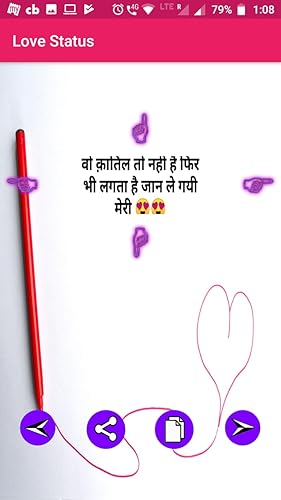 cb
4G
LTE R
79%
1:08
Love Status
वो क़ातिल तो नहीं है फिर
भी लगता है जान ले गयी
मेरी 😍😍